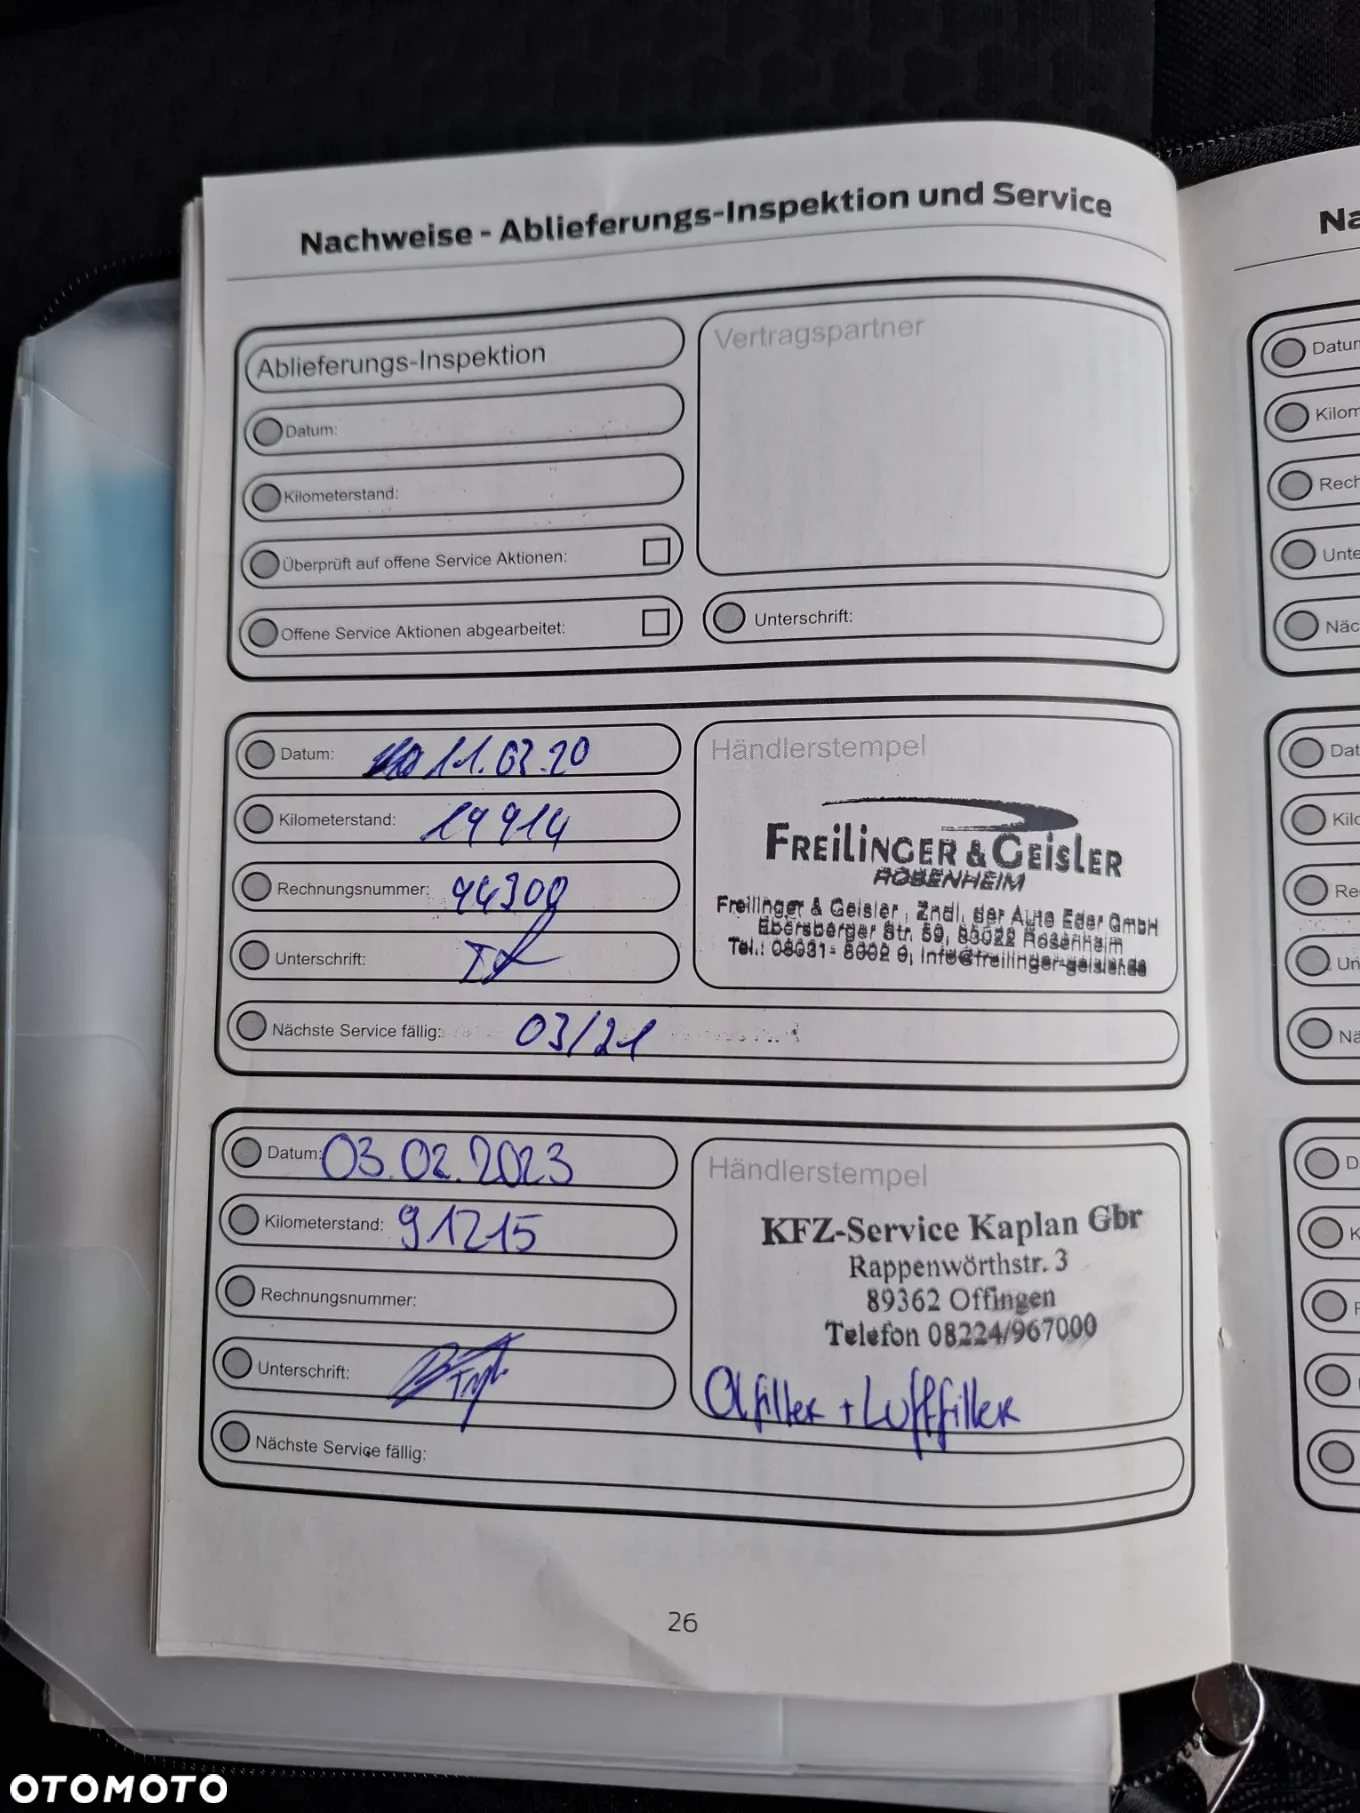 Nachweise - Ablieferungs-Inspektion und Service
Ablieferungs-Inspektion
Datum:
Kilometerstand:
Überprüft auf offene Service Aktionen:
Offene Service Aktionen abgearbeitet:
Vertragspartner
Unterschrift:
Datum: 11.03.20
Kilometerstand: 19914
Rechnungsnummer: 44300
Unterschrift:
Nächste Service fällig: 03/21
Händlerstempel
FREILINGER & GEISLER
ROSENHEIM
Freilinger & Geisler, Zndl. der Auto Eder GmbH
Ebersberger Str. 59, 83022 Rosenheim
Tel.: 08031- 8002 0, info@freilinger-geisler.de
Datum: 03.02.2023
Kilometerstand: 91215
Rechnungsnummer:
Unterschrift:
Nächste Service fällig:
Händlerstempel
KFZ-Service Kaplan Gbr
Rappenwörthstr. 3
89362 Offingen
Telefon 08224/967000
Ölfilter + Luftfilter
26
Na
Datum
Kilom
Rech
Unte
Näc
Dat
Kilo
Re
Un
Nä
D
K
OTOMOTO